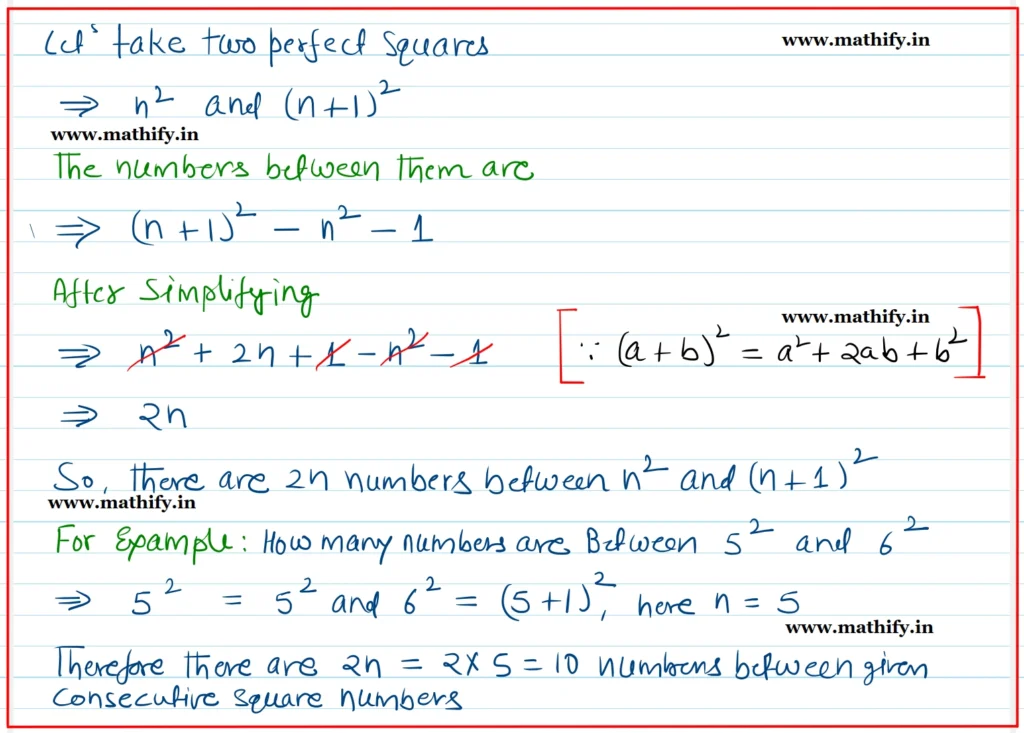 Let's take two perfect squares
www.mathify.in
⇒ n² and (n+1)²
www.mathify.in
The numbers between them are
⇒ (n+1)² - n² - 1
After Simplifying
www.mathify.in
⇒ n² + 2n + 1 - n² - 1 [∵ (a+b)² = a² + 2ab + b²]
⇒ 2n
So, there are 2n numbers between n² and (n+1)²
www.mathify.in
For Example: How many numbers are Between 5² and 6²
⇒ 5² = 5² and 6² = (5+1)², here n = 5
www.mathify.in
Therefore there are 2n = 2×5 = 10 numbers between given
consecutive square numbers